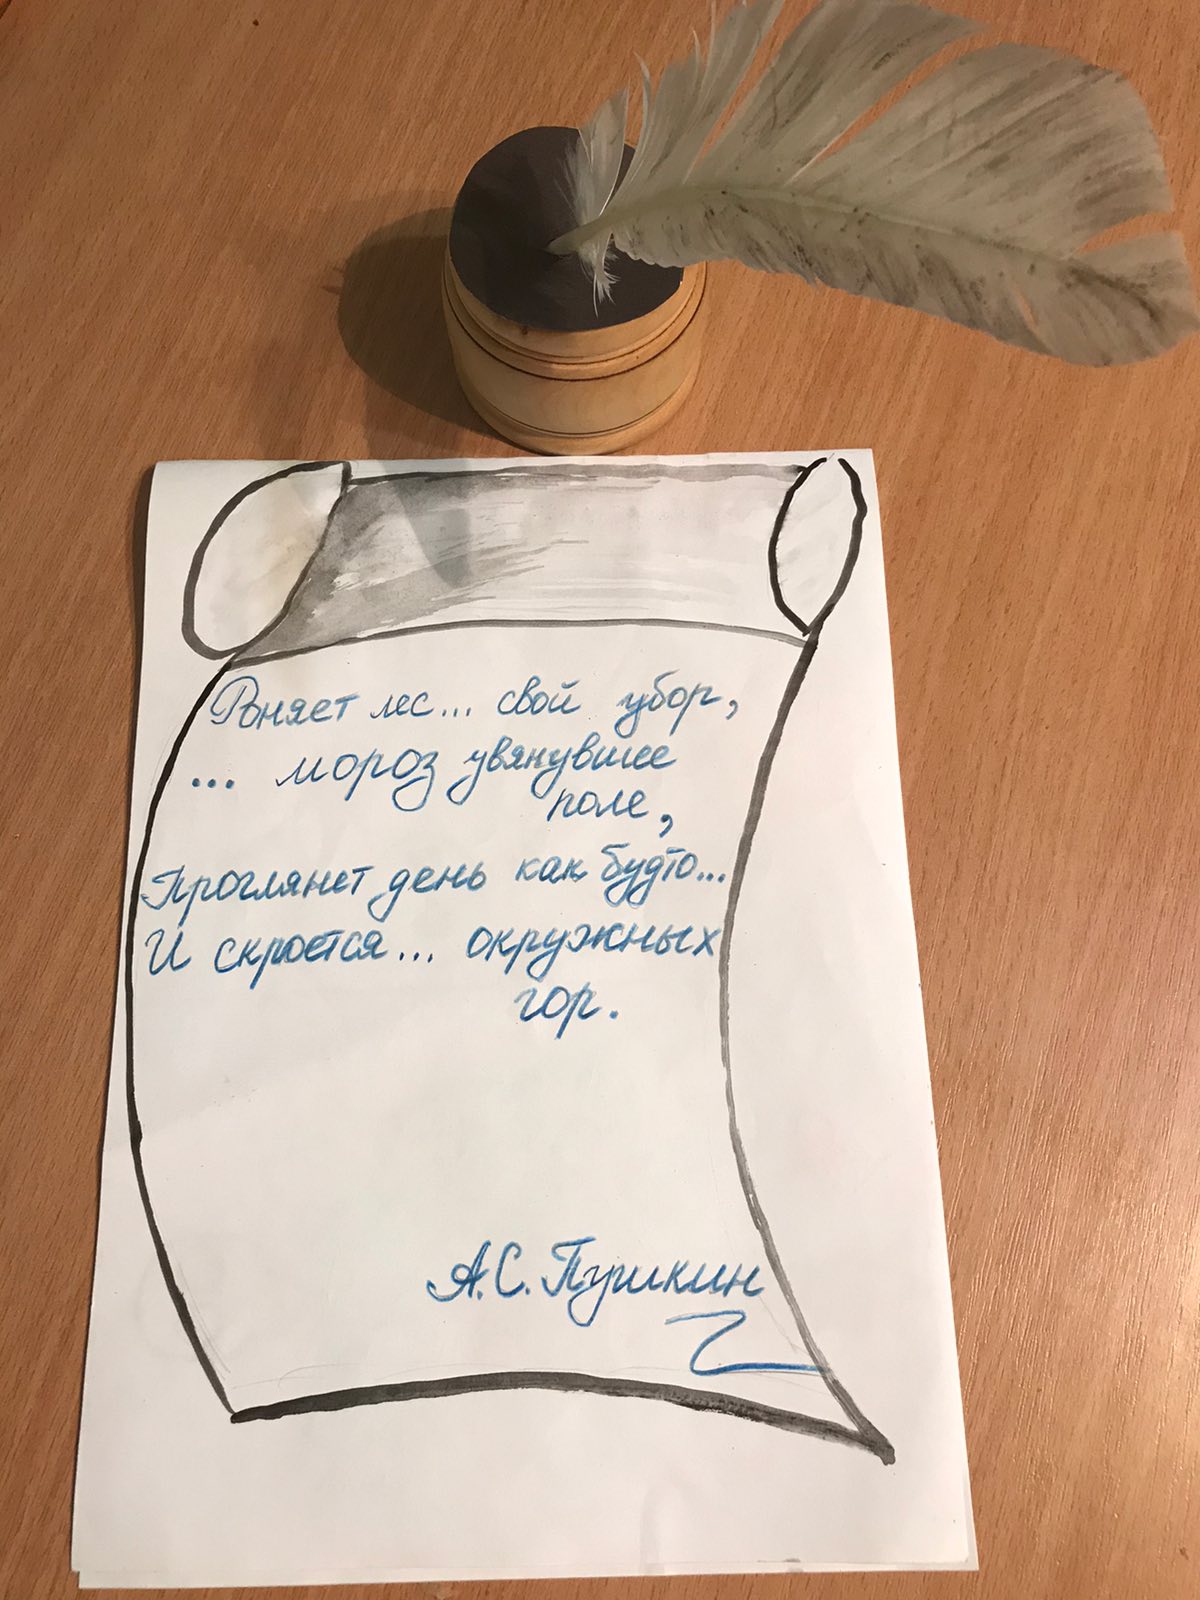 Роняет лес... свой убор,
... мороз увянувшее
поле,
Проглянет день как будто...
И скроется... окружных
гор.
А.С. Пушкин